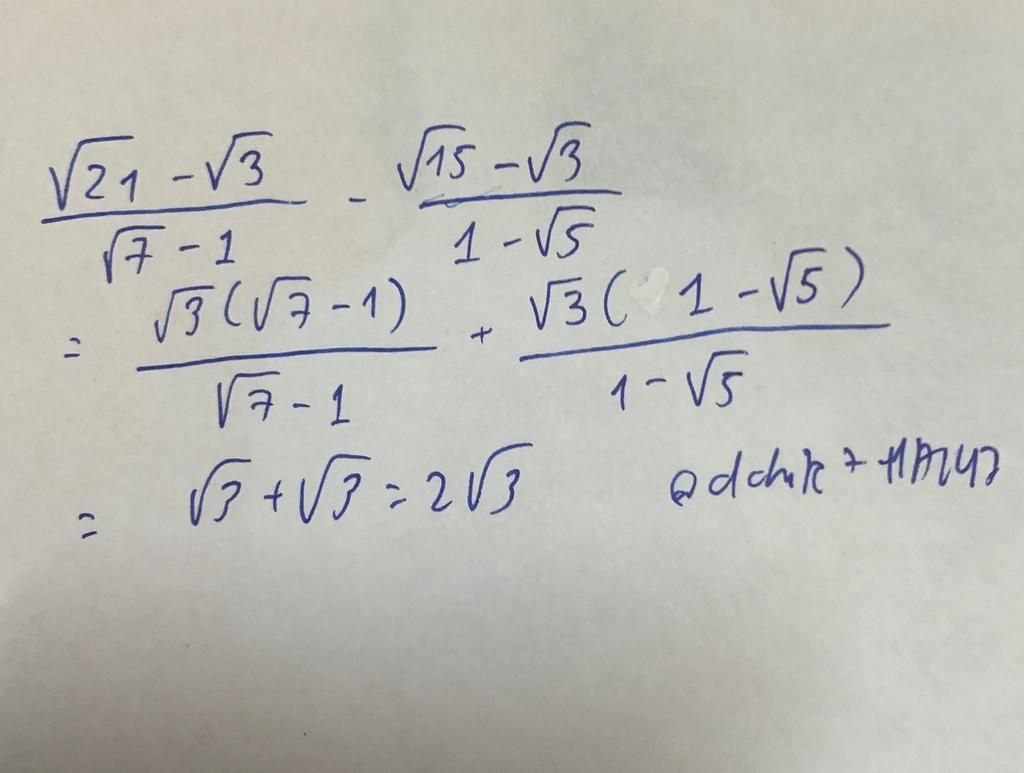 (√21 - √3)/(√7 - 1) - (√15 - √3)/(1 - √5)
= √3(√7 - 1)/(√7 - 1) + √3(1 - √5)/(1 - √5)
= √3 + √3 = 2√3